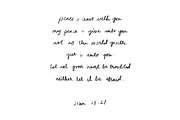 peace I leave with you
my peace I give unto you
not as the world giveth
give I unto you
let not your heart be troubled
neither let it be afraid.
John 14:27